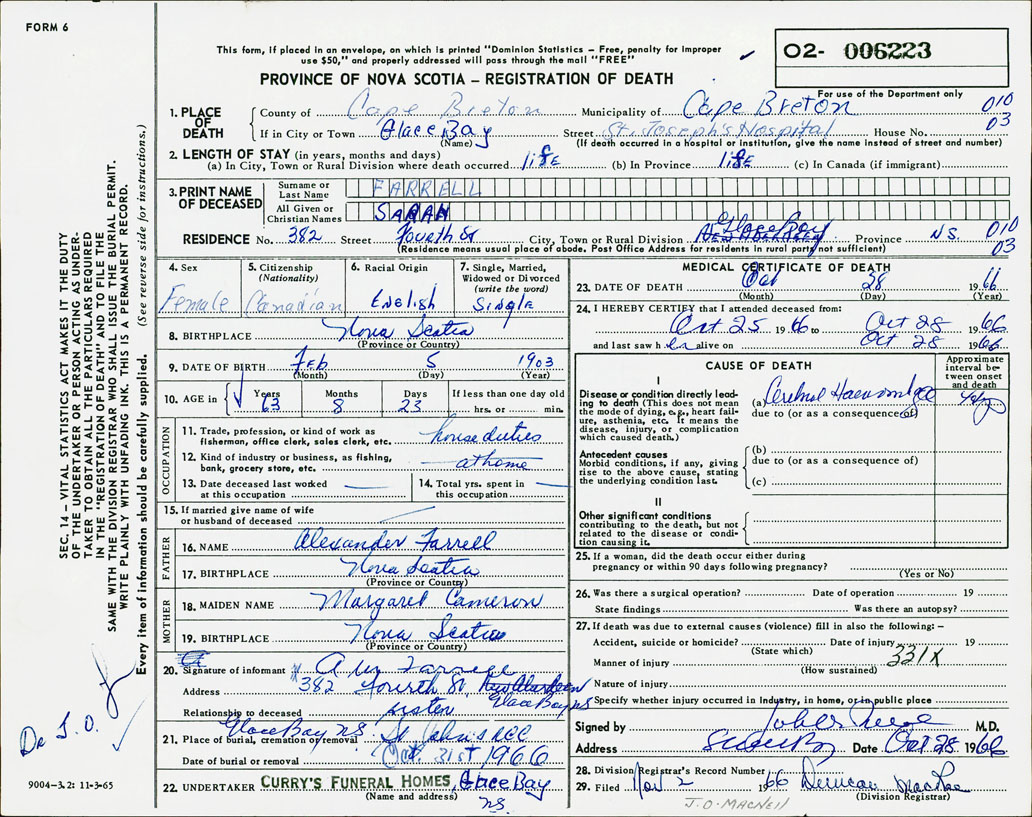 FORM 6
This form, if placed in an envelope, on which is printed "Dominion Statistics – Free, penalty for improper
use $50," and properly addressed will pass through the mail "FREE"
O2- 006223
PROVINCE OF NOVA SCOTIA – REGISTRATION OF DEATH
For use of the Department only
1. PLACE OF DEATH
County of Cape Breton Municipality of Cape Breton 010
If in City or Town Glace Bay Street St. Joseph's Hospital House No. 03
(Name) (If death occurred in a hospital or institution, give the name instead of street and number)
2. LENGTH OF STAY (in years, months and days)
(a) In City, Town or Rural Division where death occurred life (b) In Province life (c) In Canada (if immigrant)
3. PRINT NAME OF DECEASED
Surname or Last Name FARRELL
All Given or Christian Names SARAH
RESIDENCE No. 382 Street Fourth St City, Town or Rural Division Glace Bay Province N.S. 010
(Residence means usual place of abode. Post Office Address for residents in rural parts not sufficient) 03
4. Sex
Female
5. Citizenship (Nationality)
Canadian
6. Racial Origin
English
7. Single, Married, Widowed or Divorced (write the word)
Single
8. BIRTHPLACE Nova Scotia
(Province or Country)
9. DATE OF BIRTH Feb 5 1903
(Month) (Day) (Year)
10. AGE in Years Months Days If less than one day old
63 8 23 hrs. or min.
OCCUPATION
11. Trade, profession, or kind of work as fisherman, office clerk, sales clerk, etc. house duties
12. Kind of industry or business, as fishing, bank, grocery store, etc. at home
13. Date deceased last worked at this occupation
14. Total yrs. spent in this occupation
15. If married give name of wife or husband of deceased
FATHER
16. NAME Alexander Farrell
17. BIRTHPLACE Nova Scotia
(Province or Country)
MOTHER
18. MAIDEN NAME Margaret Cameron
19. BIRTHPLACE Nova Scotia
(Province or Country)
20. Signature of informant
Address 382 Fourth St, New Aberdeen
Glace Bay NS
Relationship to deceased sister
Glace Bay NS
21. Place of burial, cremation or removal St. John's
Date of burial or removal Oct. 31st, 1966
22. UNDERTAKER CURRY'S FUNERAL HOMES, Glace Bay
(Name and address) NS.
MEDICAL CERTIFICATE OF DEATH
23. DATE OF DEATH Oct 28 1966
(Month) (Day) (Year)
24. I HEREBY CERTIFY that I attended deceased from:
Oct 25 1966 to Oct 28 1966
and last saw her alive on Oct 28 1966
CAUSE OF DEATH
Approximate interval between onset and death
I
Disease or condition directly leading to death (This does not mean the mode of dying, e.g., heart failure, asthenia, etc. It means the disease, injury, or complication which caused death.)
(a) Cerebral Haemorrhage
due to (or as a consequence of)
Antecedent causes
Morbid conditions, if any, giving rise to the above cause, stating the underlying condition last.
(b)
due to (or as a consequence of)
(c)
II
Other significant conditions
contributing to the death, but not related to the disease or condition causing it.
25. If a woman, did the death occur either during pregnancy or within 90 days following pregnancy?
(Yes or No)
26. Was there a surgical operation? Date of operation 19
State findings Was there an autopsy?
27. If death was due to external causes (violence) fill in also the following: –
Accident, suicide or homicide? Date of injury 19
(State which)
Manner of injury 331X
(How sustained)
Nature of injury
Specify whether injury occurred in Industry, in home, or in public place
Signed by M.D.
Address Date Oct 28 1966
28. Division Registrar's Record Number
29. Filed Nov 2 1966 Duncan MacRae
(Division Registrar)
J.O. MACNEIL
SEC. 14 – VITAL STATISTICS ACT MAKES IT THE DUTY
OF THE UNDERTAKER OR PERSON ACTING AS UNDER-
TAKER TO OBTAIN ALL THE PARTICULARS REQUIRED
IN THE "REGISTRATION OF DEATH" AND TO FILE THE
SAME WITH THE DIVISION REGISTRAR WHO SHALL ISSUE THE BURIAL PERMIT.
WRITE PLAINLY WITH UNFADING INK. THIS IS A PERMANENT RECORD.
Every item of information should be carefully supplied. (See reverse side for instructions.)
Dr J.O.
9004–3.2: 11-3-65